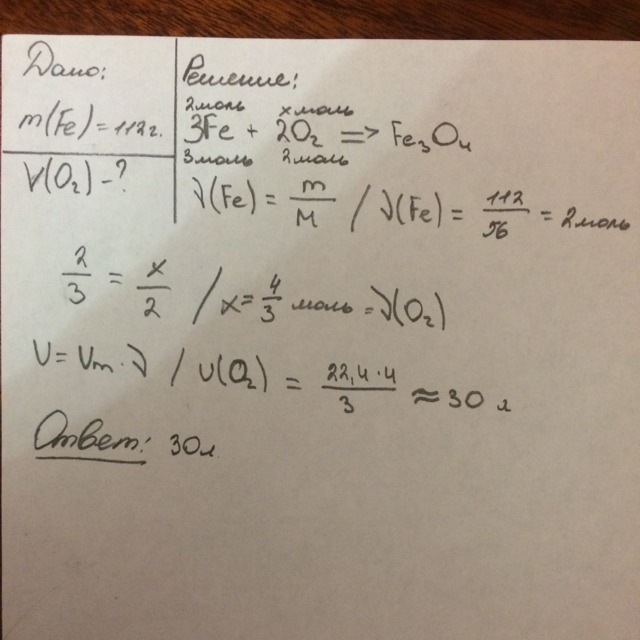 Дано:
m(Fe) = 112 г.
V(O₂) - ?
Решение:
2моль x моль
3Fe + 2O₂ => Fe₃O₄
3моль 2моль
ν(Fe) = m/M / ν(Fe) = 112/56 = 2моль
2/3 = x/2 / x = 4/3 моль = ν(O₂)
V = Vm · ν / V(O₂) = 22,4·4/3 ≈ 30 л
Ответ: 30л